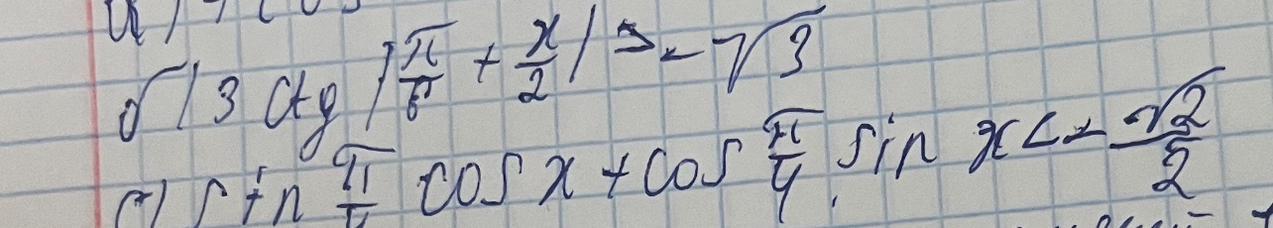 б) 3 ctg (π/6 + x/2) > -√3
в) sin π/4 cos x + cos π/4 sin x < -√2/2